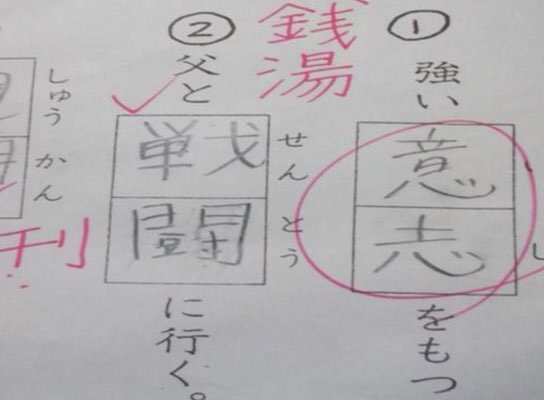 ①
強い意志をもつ
いし
②
銭湯
父と戦闘に行く。
せんとう
しゅうかん
刊